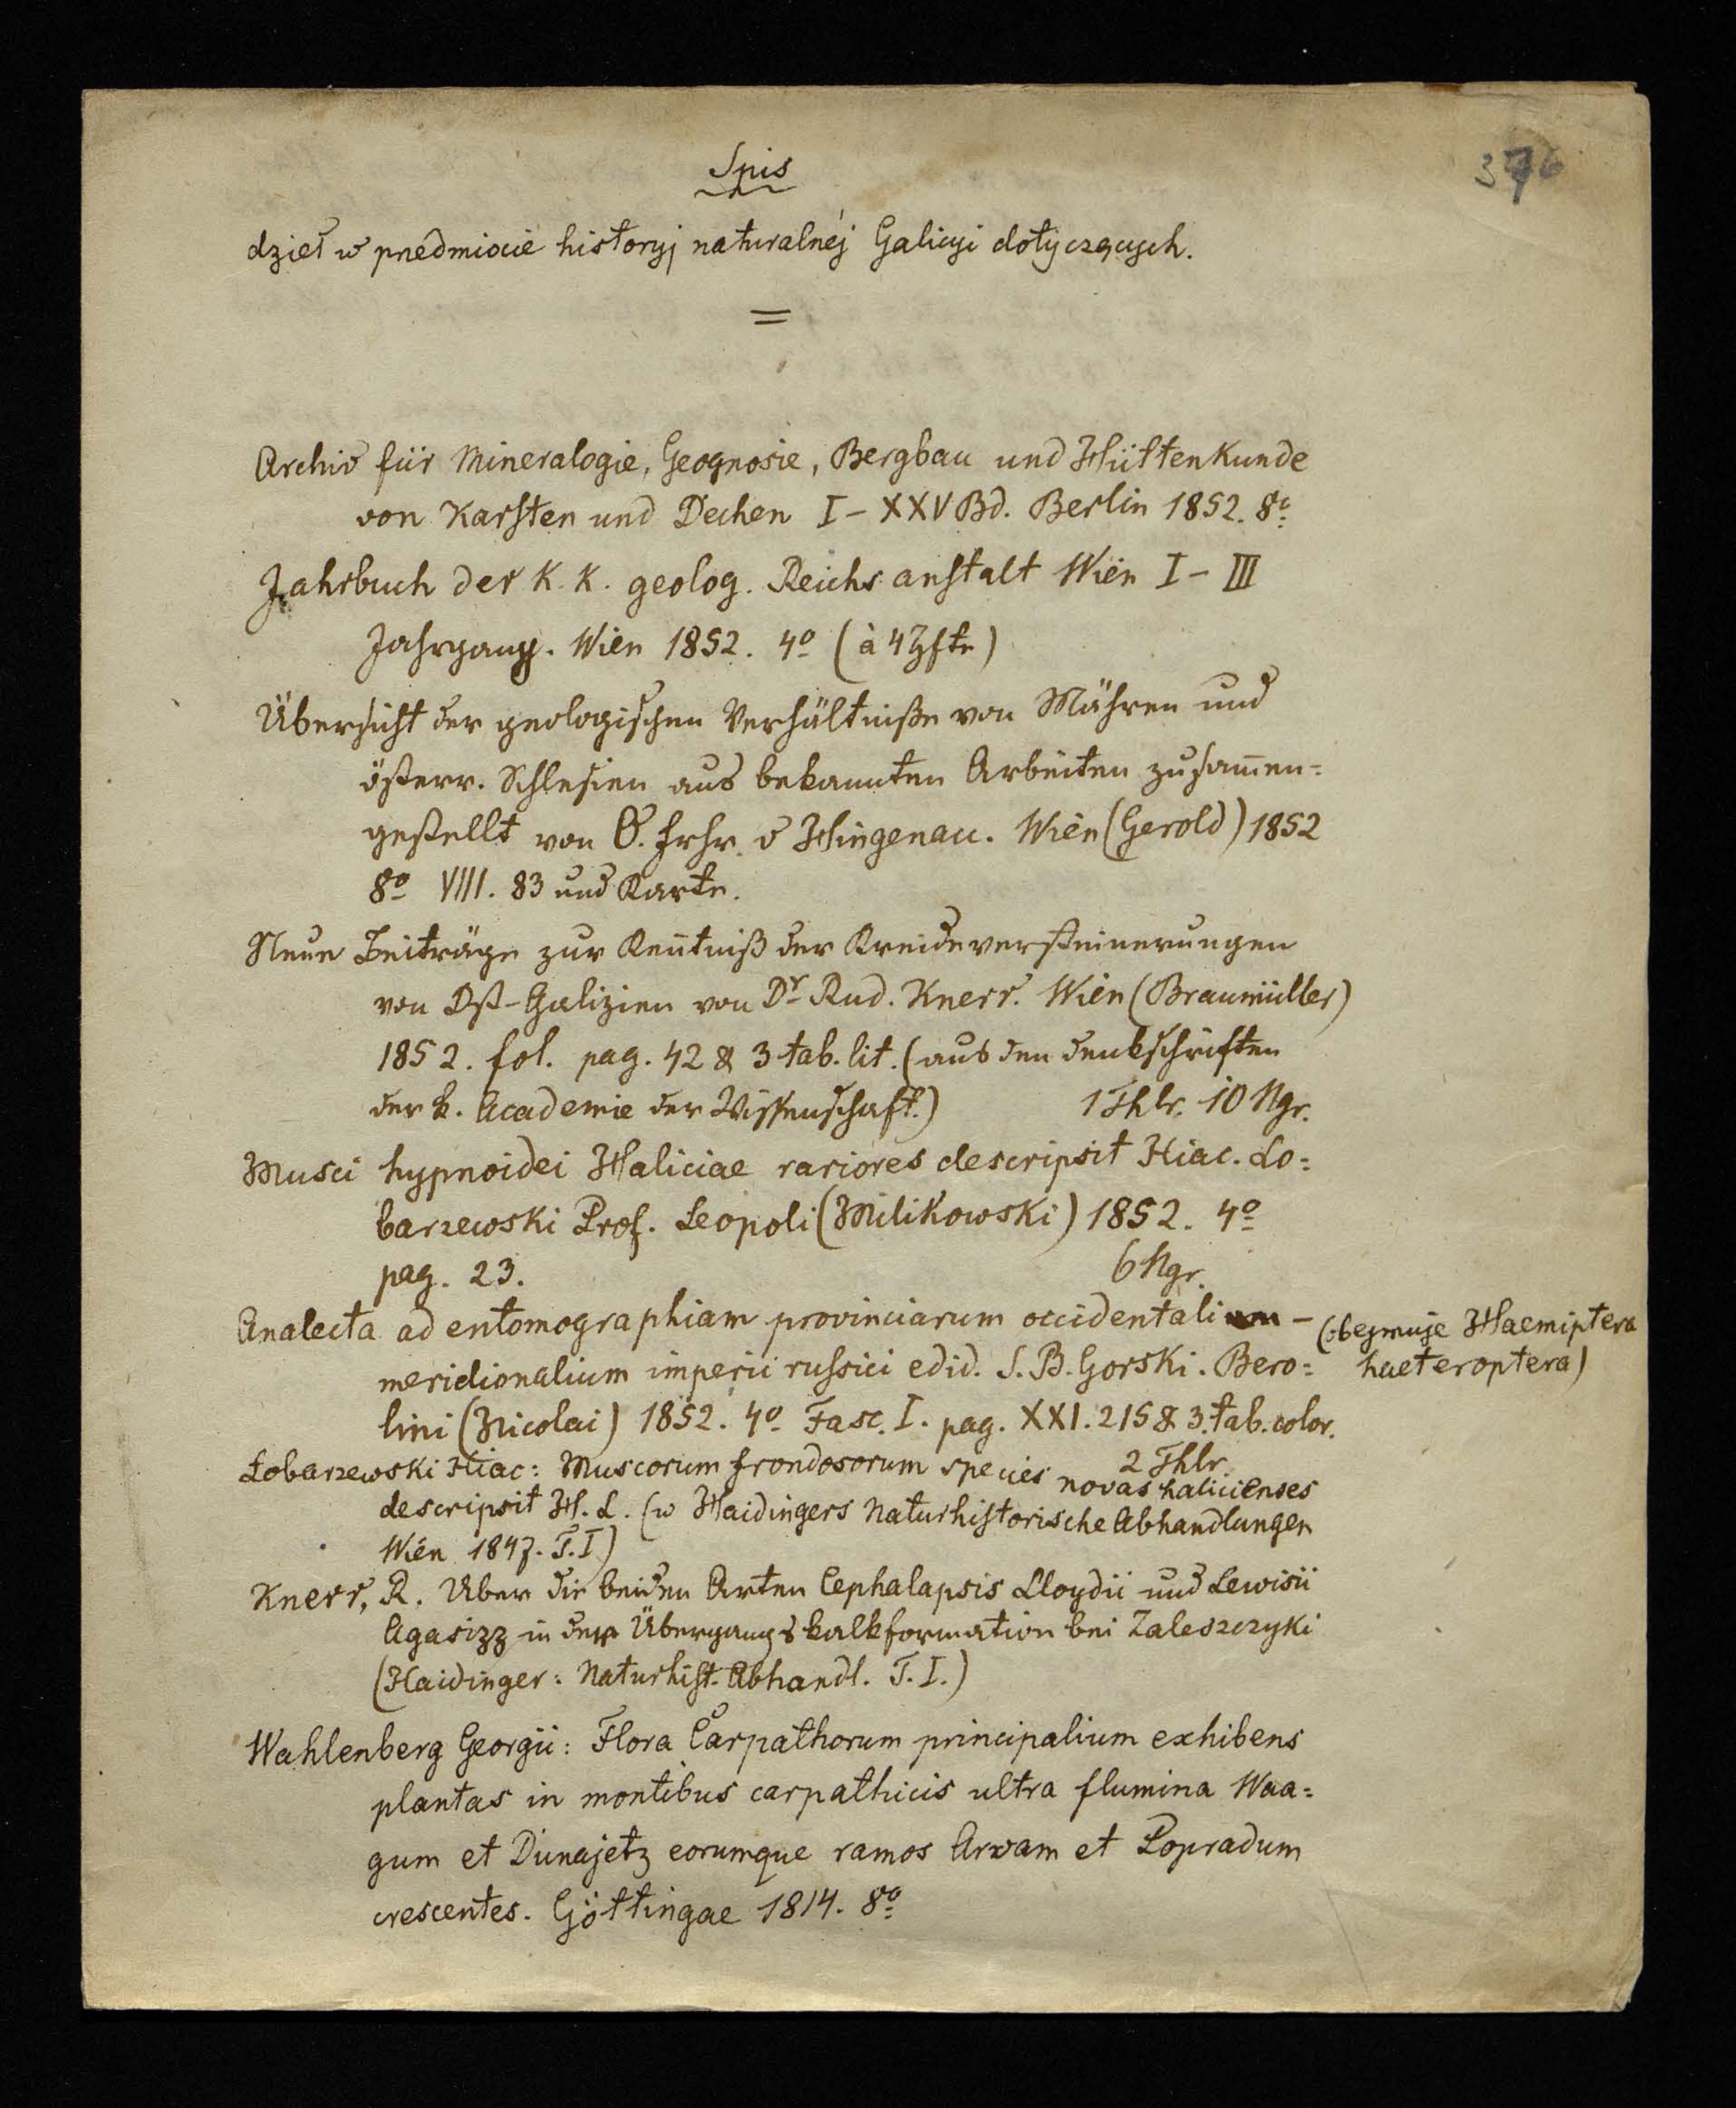 376
Spis
dzieł w przedmiocie historyj naturalnéj Galicyi dotyczących.
=
Archiv für Mineralogie, Geognosie, Bergbau und Hüttenkunde
von Karsten und Dechen I – XXV Bd. Berlin 1852. 8º
Jahrbuch der K. K. geolog. Reichsanstalt Wien I – III
Jahrgang. Wien 1852. 4º (à 4 Hfte)
Übersicht der geologischen Verhältniße von Mähren und
österr. Schlesien aus bekannten Arbeiten zusam̄en=
gestellt von O. Frhr. v Hingenau. Wien (Gerold) 1852
8º VIII. 83 und Karte.
Neue Beiträge zur Ken̄tniß der Kreideversteinerungen
von Ost-Galizien von Dr Rud. Knerr. Wien (Braumüller)
1852. fol. pag. 42 & 3 tab. lit. (aus den Denkschriften
der k. Academie der Wissenschaft.) 1 Thlr. 10 Ngr.
Musci hypnoidei Haliciae rariores descripsit Hiac. Lo=
barzewski Prof. Leopoli (Milikowski) 1852. 4º
pag. 23. 6 Ngr.
Analecta ad entomographiam provinciarum occidentalium – (obejmuje Haemiptera
meridionalium imperii russici edid. S. B. Gorski. Bero= haeteroptera)
lini (Nicolai) 1852. 4º Fasc. I. pag. XXI. 215 & 3. tab. color.
2 Thlr
Łobarzewski Hiac: Muscorum frondosorum species novas halicienses
descripsit H. L. (w Haidingers Naturhistorische Abhandlungen
Wien 1847. T. I)
Knerr, R. Uber die beiden Arten Cephalapsis Lloydii und Lewisii
Agasizz in der Übergangskalkformation bei Zaleszczyki
(Haidinger: Naturhist. Abhandl. T. I.)
Wahlenberg Georgii: Flora Carpathorum principalium exhibens
plantas in montibus carpathicis ultra flumina Waa=
gum et Dunajetz eorumque ramos Arvam et Popradum
crescentes. Göttingae 1814. 8º